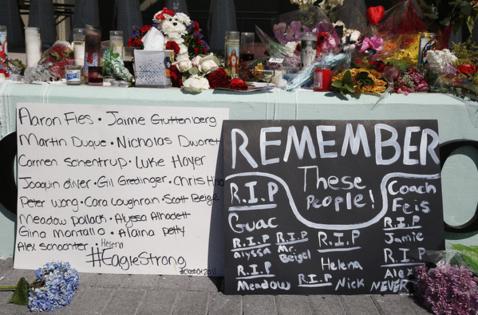 Aaron Fies • Jaime Guttenberg
Martin Duque • Nicholas Dworet
Carmen Schentrup • Luke Hoyer
Joaquin oliver • Gil Gredinger • Chris
Peter wang • Cara Loughran • Scott Beigel
Meadow pollack • Alyssa Alhadeff
Gina Montalto • Alaina petty
Alex schachter • Helena
#EagleStrong
REMEMBER
These
People!
R.I.P
Guac
R.I.P
Alyssa
R.I.P
Mr.
Beigel
R.I.P
Helena
R.I.P
Meadow
R.I.P
Nick
Coach
Feis
R.I.P
Jamie
R.I
Alex
NEVER